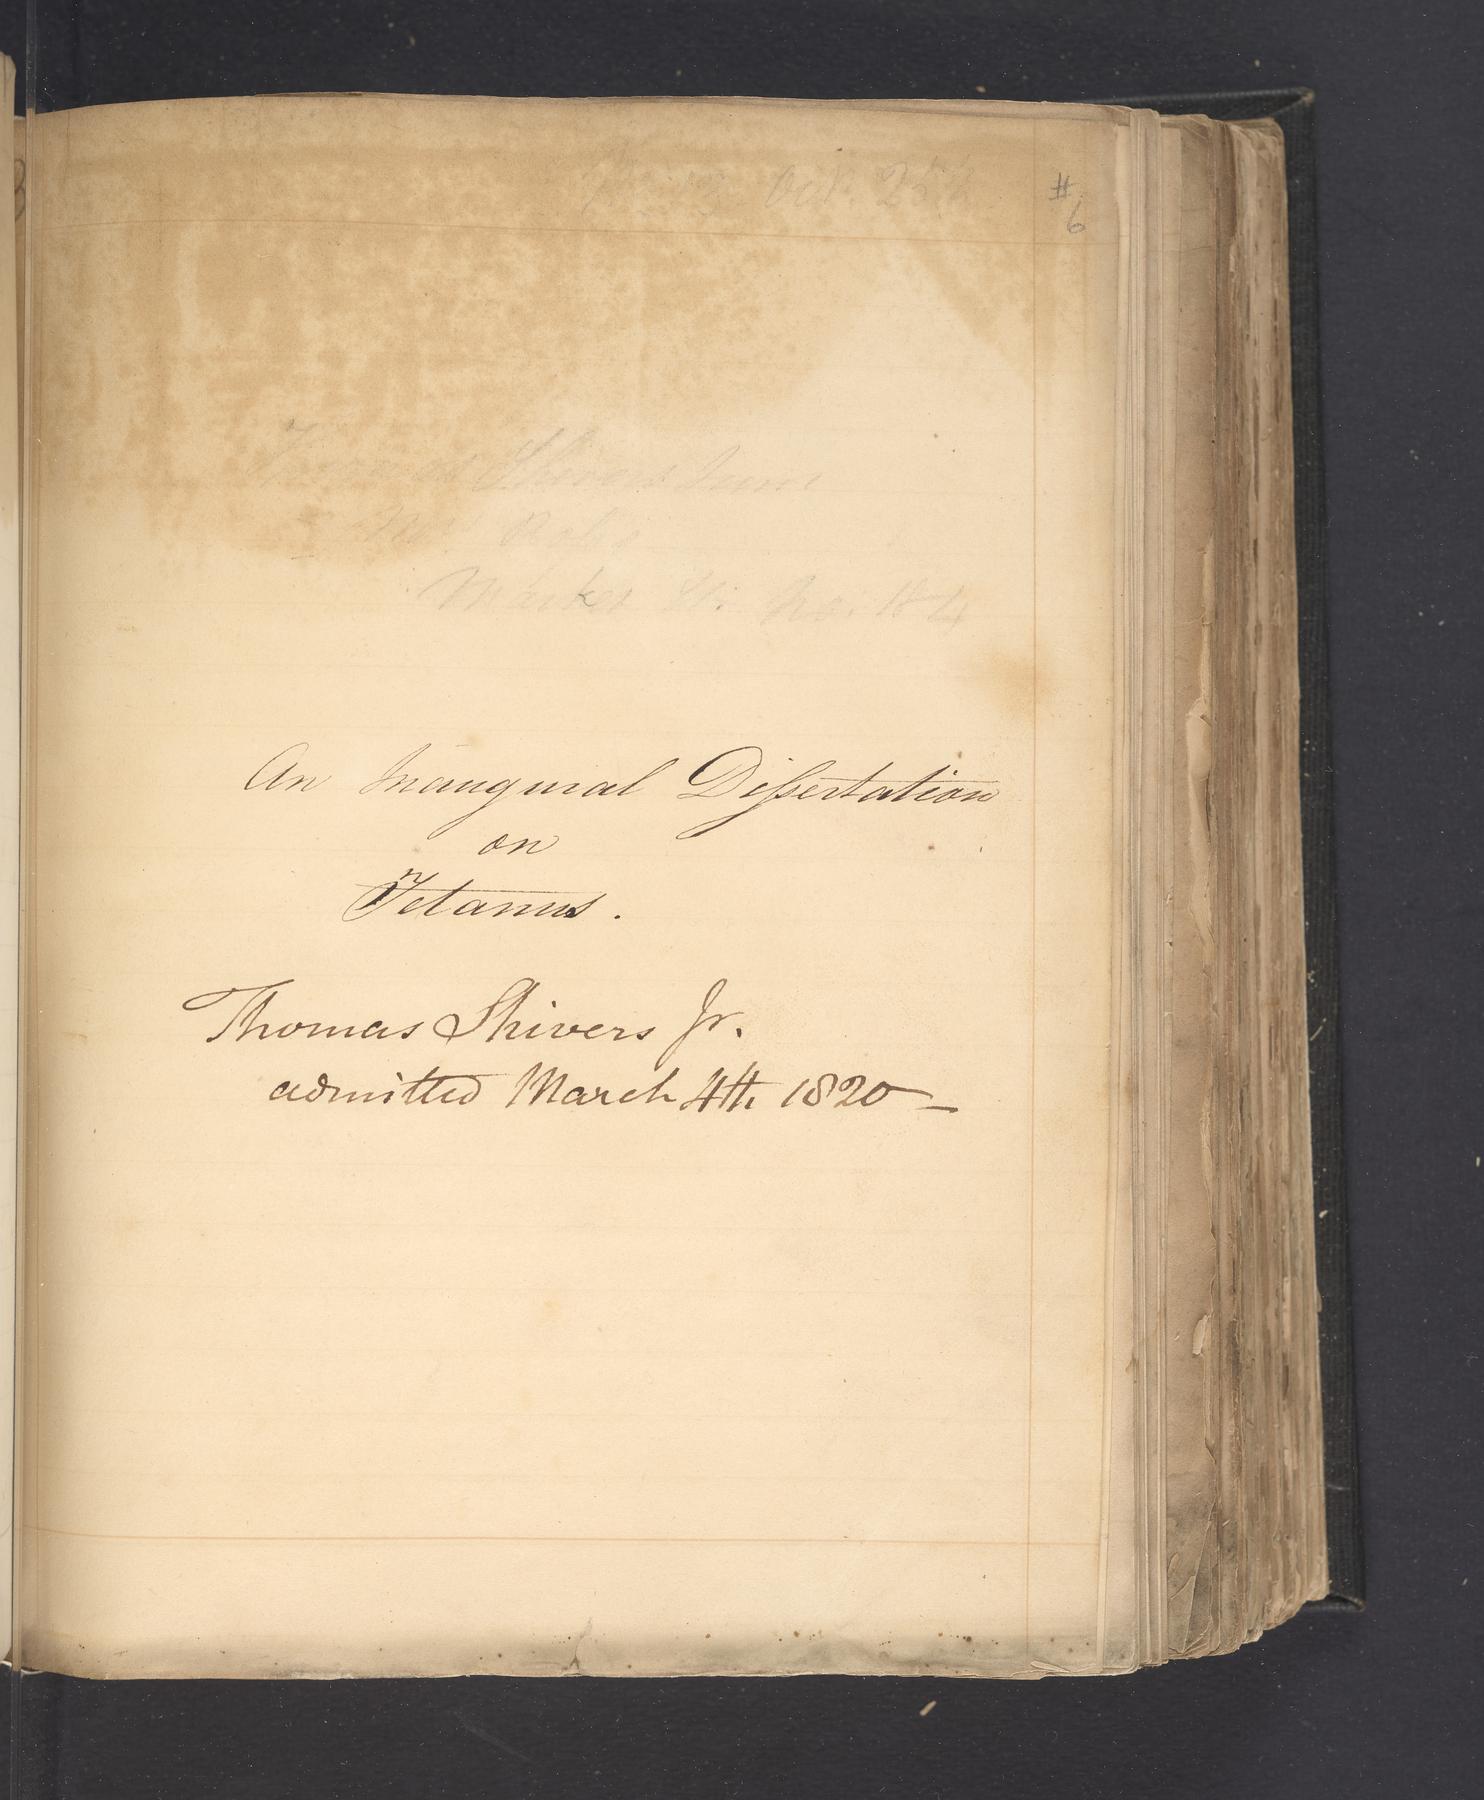 Oct. 25th
#
6
Thomas Shivers Junr
Mrs
Market St. No. 184
An Inaugural Dissertation
on
Tetanus.
Thomas Shivers Jr.
admitted March 4th 1820 –